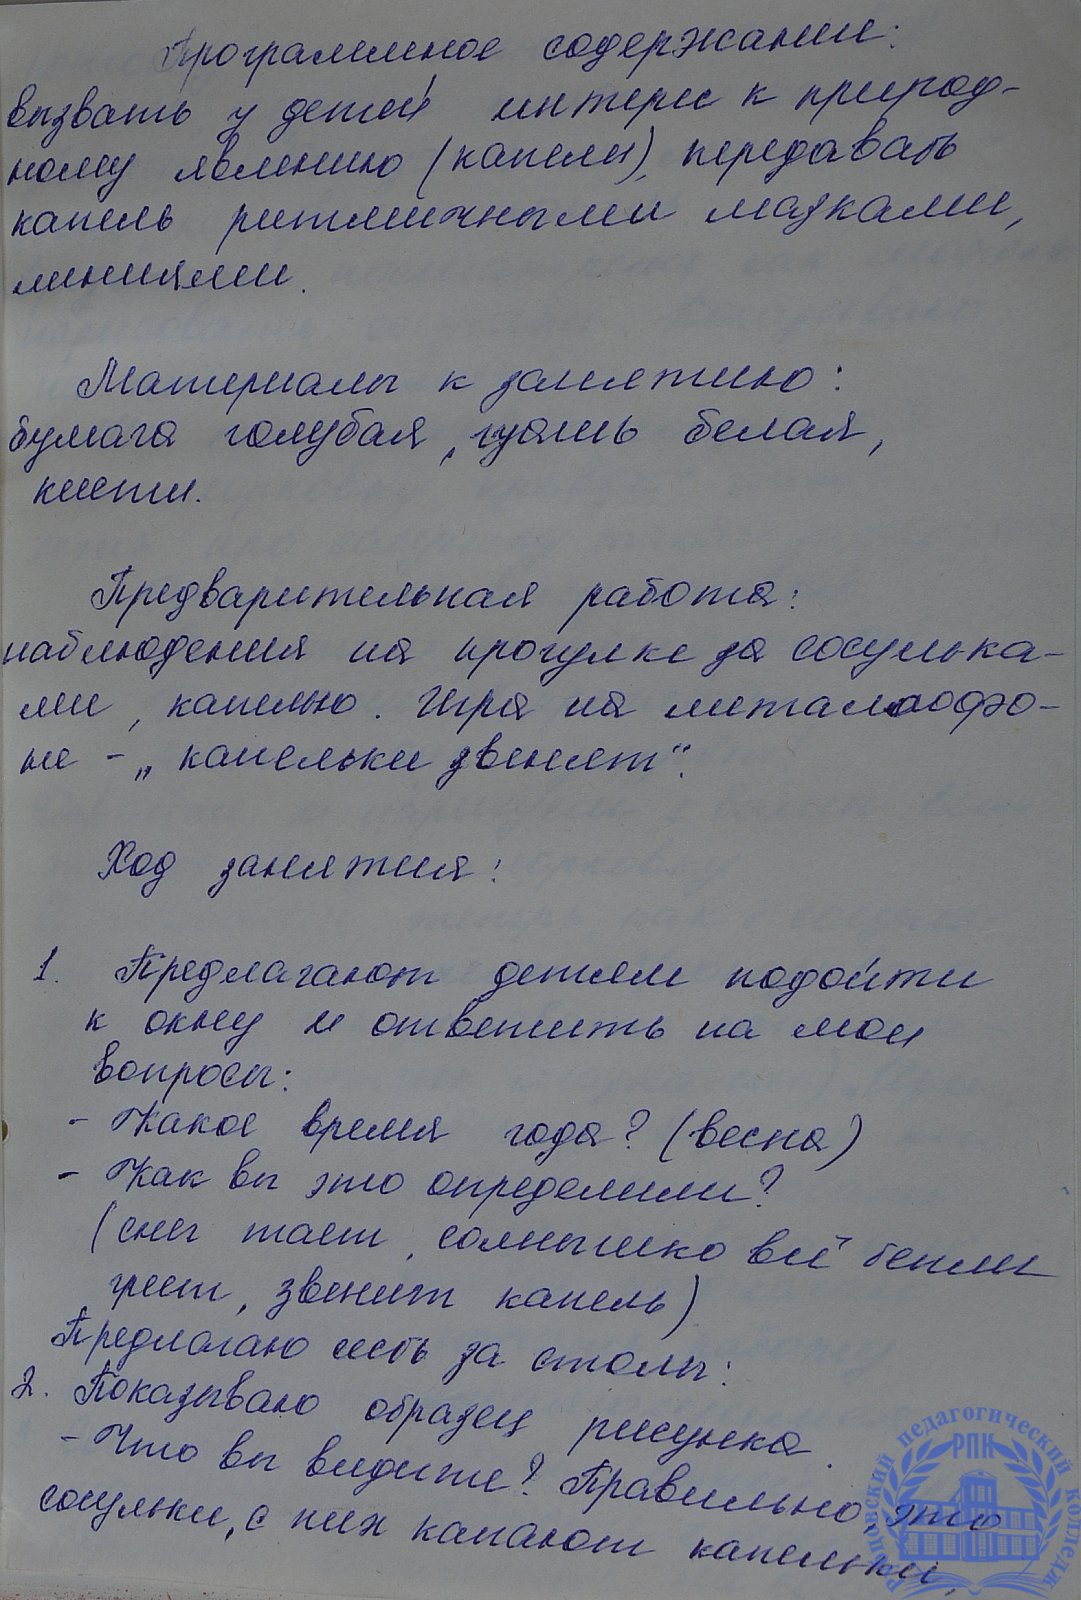 Программное содержание:
вызвать у детей интерес к природ-
ному явлению (капели), передавать
капель ритмичными мазками,
линиями.
Материалы к занятию:
бумага голубая, гуашь белая,
кисти.
Предварительная работа:
наблюдения на прогулке за сосулька-
ми, капелью. Игра на металлофо-
не - „капельки звенят“.
Ход занятия:
1. Предлагают детям подойти
к окну и ответить на мои
вопросы:
- Какое время года? (весна)
- Как вы это определили?
(снег тает, солнышко всё теплее
греет, звенит капель)
Предлагаю сесть за столы:
2. Показываю образец рисунка.
- Что вы видите? Правильно, это
сосульки, с них капают капельки,
Раменский педагогический колледж
РПК